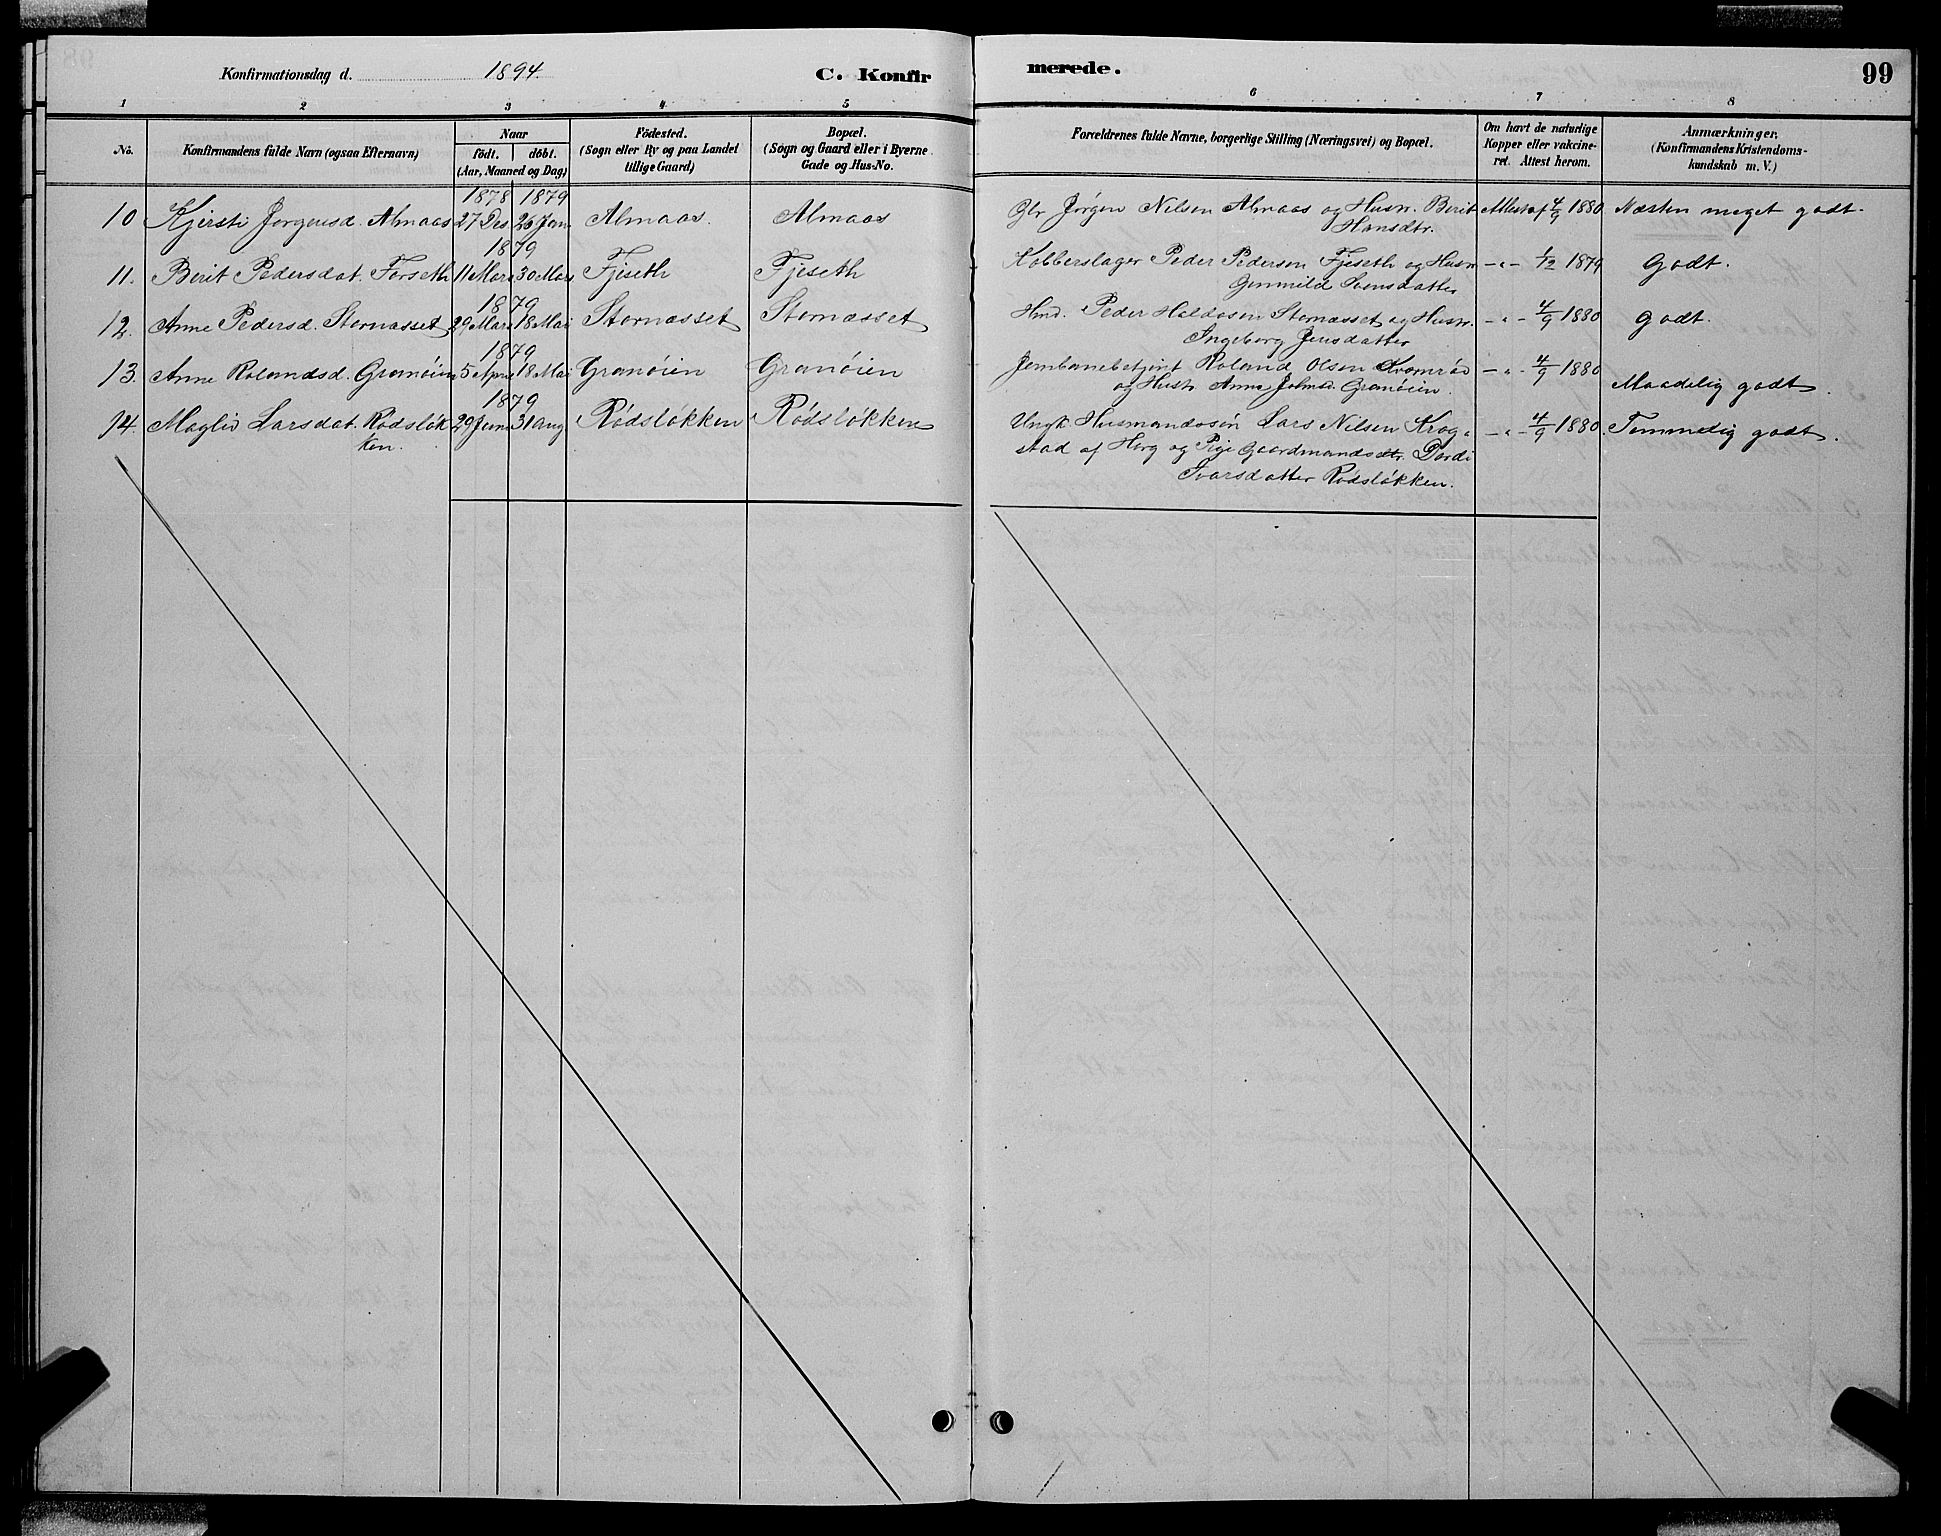 Konfirmationsdag d. 1894. C. Konfirmerede. 99
1 2 3 4 5 6 7 8
No. Konfirmandens fulde Navn (ogsaa Efternavn) Naar födt. döbt. (Aar, Maaned og Dag) Födested. (Sogn eller By og paa Landet tillige Gaard) Bopæl. (Sogn og Gaard eller i Byerne Gade og Hus-No. Forældrenes fulde Navne, borgerlige Stilling (Næringsvei) og Bopæl. Om havt de naturlige Kopper eller vakcineret. Attest herom. Anmærkninger. (Konfirmandens Kristendomskundskab m.V.)
1878 1879
10 Kjersti Jørgensd. Almaas 27 Des. 26 Jan. Almaas. Almaas Gbr Jørgen Nilsen Almaas og Husn. Berit Attest af 4/9 1880 Næsten meget godt.
Hansdtr.
1879
11. Berit Pedersdat. Forseth 11 Mars 30 Mars Fjeseth Fjeseth Kobberslager Peder Pedersen Fjeseth og Husn - " - 1/12 1879 Godt.
Gunnild Svensdatter
1879
12. Anne Pedersd. Stornæsset 29 Mars 18 Mai Stornæsset Stornæsset Hmd. Peder Haldosen Stornæsset og Husn. - " - 4/9 1880 Godt.
Ingeborg Jensdatter
1879
13. Anne Rolandsd. Granöien 5 April 18 Mai Granöien Granöien Jernbanebetjent Roland Olsen Kvamröd - " - 4/9 1880
og Hustr Anne Johnsd. Granöien. Maadelig godt.
1879
14. Maglid Larsdat. Rödsløk- 29 Juni 31 Aug Rödsløkken Rödsløkken Ungk. Husmandssön Lars Nilsen Krog- - " - 4/9 1880. Temmelig godt.
ken. stad af Horg og Pige Gaardmandsdtr. Dordi
Ivarsdatter Rödsløkken.